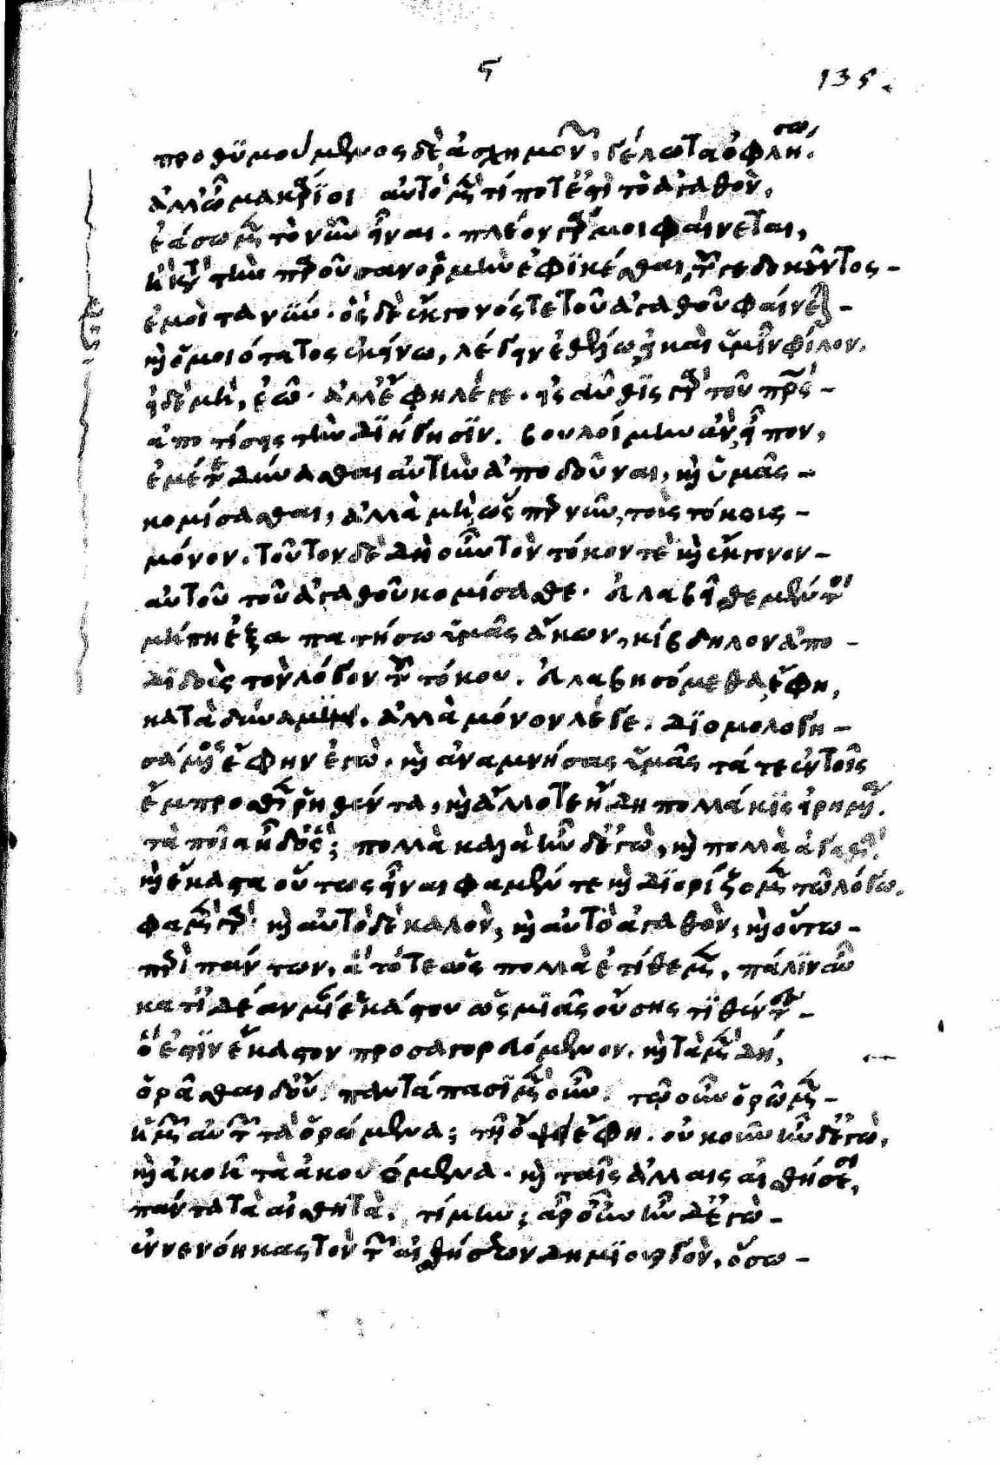 ς 135.
προθυμούμενος δὲ ἀσχημονῶν, γέλωτα ὀφλήσω,
ἀλλ' ὦ μακάριοι αὐτὸ μὲν τί ποτ' ἐστὶ τὸ ἀγαθὸν,
ἐάσωμεν τὸ νῦν εἶναι. πλέον γάρ μοι φαίνεται,
ἢ κατὰ τὴν παροῦσαν ὁρμὴν ἐφικέσθαι τοῦ γε δοκοῦντος
ἐμοὶ τανῦν. ὃς δὲ ἔκγονός τε τοῦ ἀγαθοῦ φαίνεται
καὶ ὁμοιότατος ἐκείνω, λέγειν ἐθέλω εἰ καὶ ὑμῖν φίλον.
εἰ δὲ μὴ, ἐῶ. ἀλλ' ἔφη λέγε. εἰσαῦθις γὰρ τοῦ πατρὸς
ἀποτίσεις τὴν διήγησιν. βουλοίμην ἂν εἶπον,
ἐμέ τε δύνασθαι αὐτὴν ἀποδοῦναι, καὶ ὑμᾶς
κομίσασθαι, ἀλλὰ μὴ ὡς περ νῦν τοὺς τόκους
μόνον. τοῦτον δὲ δὴ οὖν τὸν τόκον τε καὶ ἔκγονον
αὐτοῦ τοῦ ἀγαθοῦ κομίσασθε. εὐλαβεῖσθε μέντοι
μή πη ἐξαπατήσω ὑμᾶς ἄκων, κίβδηλον ἀπο
διδοὺς τὸν λόγον τοῦ τόκου. εὐλαβησόμεθα ἔφη,
κατὰ δύναμιν. ἀλλὰ μόνον λέγε. διομολογη
σάμενος ἔφην ἐγὼ. καὶ ἀναμνήσας ὑμᾶς τά τε ἐν τοῖς
ἔμπροσθεν ῥηθέντα, καὶ ἄλλοτε ἤδη πολλάκις εἰρημένα.
τὰ ποῖα ἦ δ' ὅς; πολλὰ καλὰ ἦν δ' ἐγὼ, καὶ πολλὰ ἀγαθὰ
καὶ ἕκαστα οὕτως εἶναι φαμέν τε καὶ διορίζομεν τῶ λόγω.
φαμὲν γάρ. καὶ αὐτὸ δὲ καλὸν, καὶ αὐτὸ ἀγαθὸν, καὶ οὕτω
περὶ πάντων, ἃ τότε ὡς πολλὰ ἐτίθεμεν, πάλιν αὖ
κατ' ἰδέαν μίαν ἑκάστου ὡς μιᾶς οὔσης τιθέντες
ὃ ἔστιν ἕκαστον προσαγορεύομεν. καὶ τὰ μὲν δὴ,
ὁρᾶσθαι παντάπασι μὲν οὖν. τῶ οὖν ὁρῶμεν
ἡμῶν αὐτῶν τὰ ὁρώμενα; τῆ ὄψει ἔφη. οὐκοῦν ἦν δ' ἐγὼ,
καὶ ἀκοῆ τὰ ἀκουόμενα. καὶ ταῖς ἄλλαις αἰσθήσεσι,
πάντα τὰ αἰσθητά. τί μήν; ἆρ' οὖν ἦν δ' ἐγὼ
ἐννενόηκας τὸν τῶν αἰσθήσεων δημιουργὸν, ὅσω